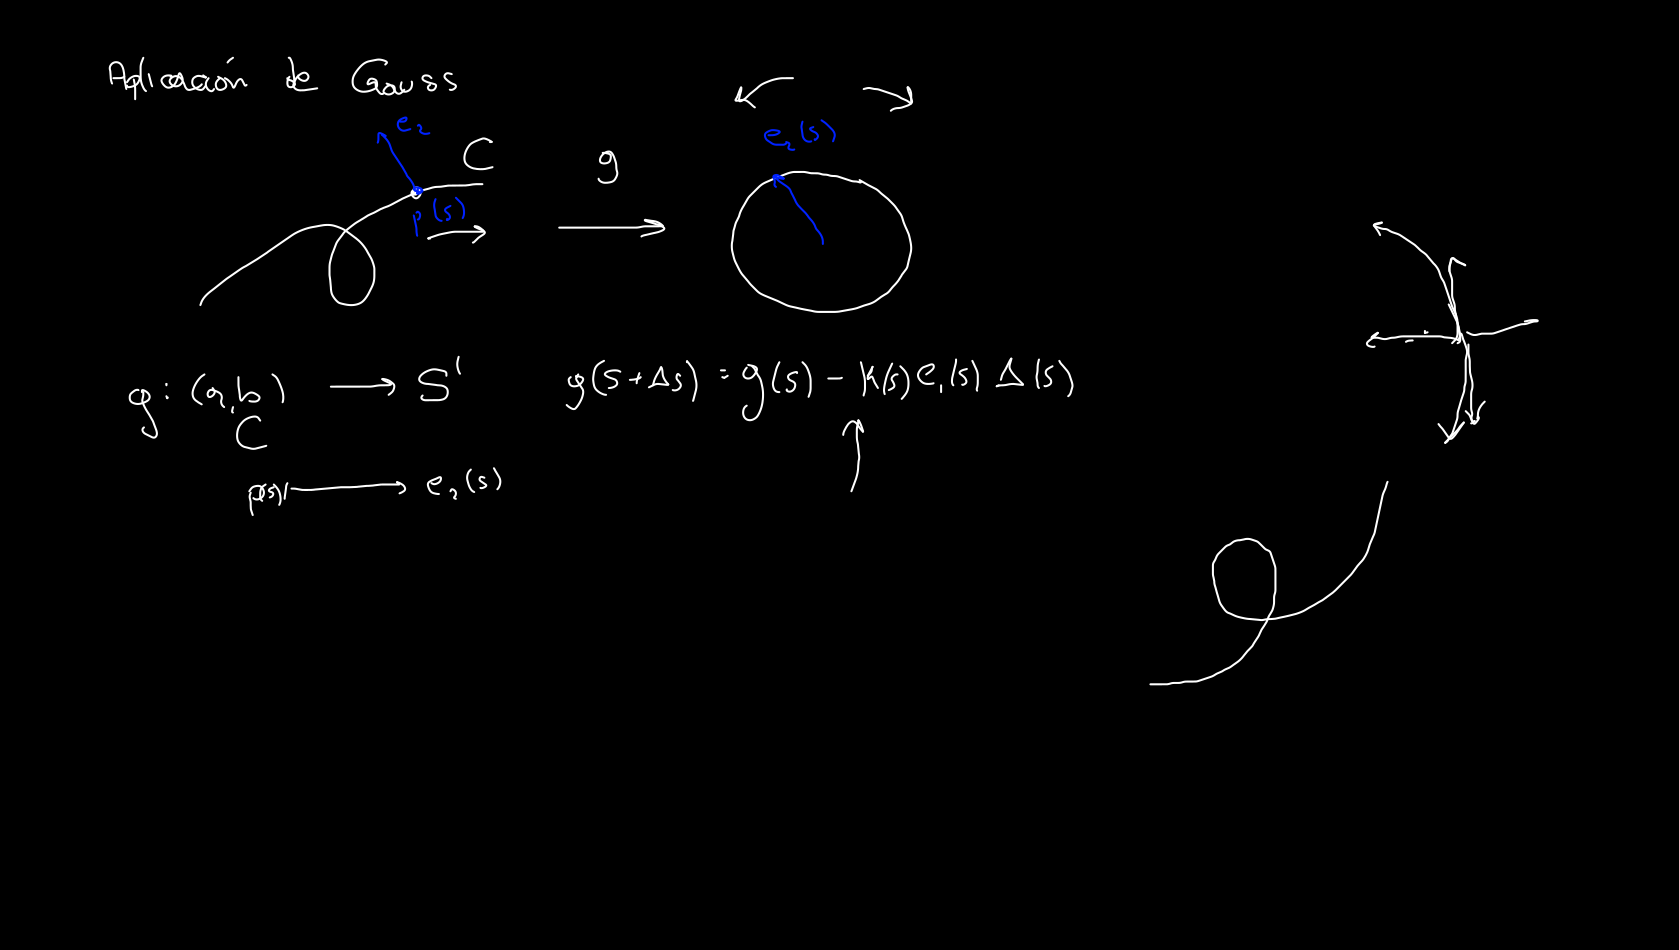 Aplicación de Gauss
e₂
C
p(s)
g
e₂(s)
g: (a,b) → S¹
C
p(s) → e₂(s)
g(s+Δs) = g(s) - k(s) e₁(s) Δ(s)